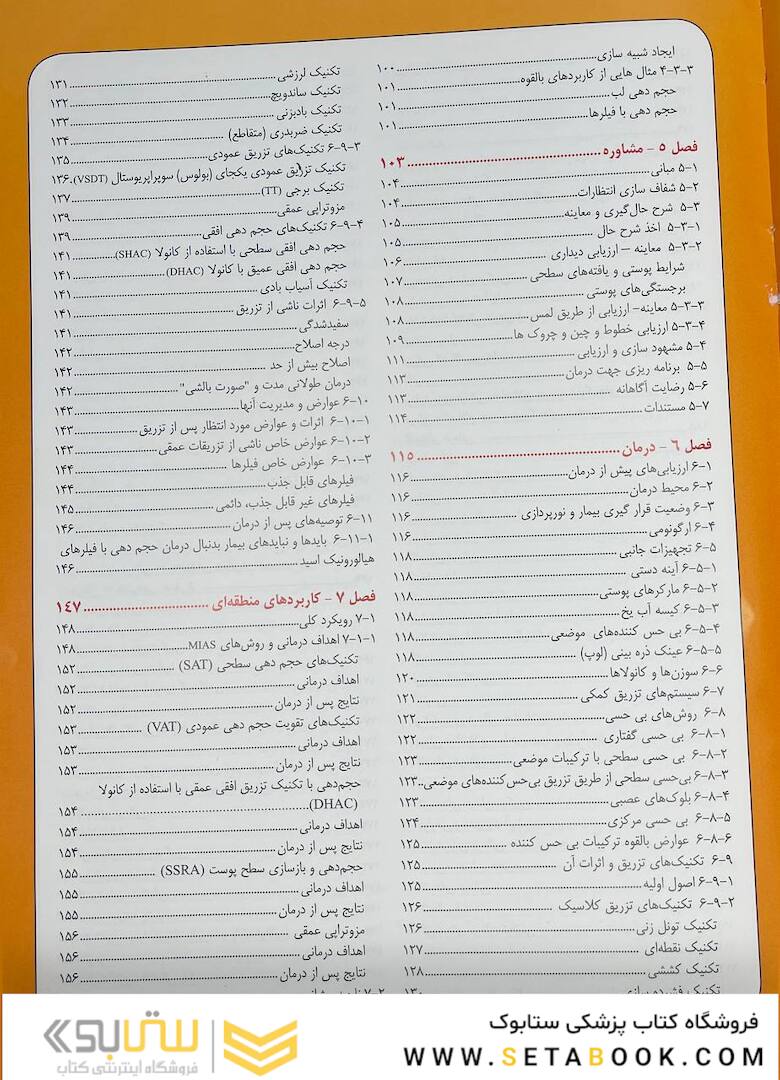 ایجاد شبیه سازی ۱۰۰
۴-۳-۳ مثال هایی از کاربردهای بالقوه ۱۰۱
حجم دهی لب ۱۰۱
حجم دهی با فیلرها ۱۰۱
فصل ۵ - مشاوره ۱۰۳
۵-۱ مبانی ۱۰۴
۵-۲ شفاف سازی انتظارات ۱۰۴
۵-۳ شرح حال‌گیری و معاینه ۱۰۵
۵-۳-۱ اخذ شرح حال ۱۰۵
۵-۳-۲ معاینه – ارزیابی دیداری ۱۰۶
شرایط پوستی و یافته‌های سطحی ۱۰۷
برجستگی‌های پوستی ۱۰۸
۵-۳-۳ معاینه- ارزیابی از طریق لمس ۱۰۸
۵-۳-۴ ارزیابی خطوط و چین و چروک ها ۱۰۹
۵-۴ مشهود سازی و ارزیابی ۱۱۱
۵-۵ برنامه ریزی جهت درمان ۱۱۳
۵-۶ رضایت آگاهانه ۱۱۳
۵-۷ مستندات ۱۱۴
فصل ۶ - درمان ۱۱۵
۶-۱ ارزیابی‌های پیش از درمان ۱۱۶
۶-۲ محیط درمان ۱۱۶
۶-۳ وضعیت قرار گیری بیمار و نورپردازی ۱۱۶
۶-۴ ارگونومی ۱۱۶
۶-۵ تجهیزات جانبی ۱۱۸
۶-۵-۱ آینه دستی ۱۱۸
۶-۵-۲ مارکرهای پوستی ۱۱۸
۶-۵-۳ کیسه آب یخ ۱۱۸
۶-۵-۴ بی حس کننده‌های موضعی ۱۱۸
۶-۵-۵ عینک ذره بینی (لوپ) ۱۱۸
۶-۶ سوزن‌ها و کانولاها ۱۲۰
۶-۷ سیستم‌های تزریق کمکی ۱۲۱
۶-۸ روش‌های بی حسی ۱۲۲
۶-۸-۱ بی حسی گفتاری ۱۲۲
۶-۸-۲ بی حسی سطحی با ترکیبات موضعی ۱۲۳
۶-۸-۳ بی‌حسی سطحی از طریق تزریق بی‌حس‌کننده‌های موضعی ۱۲۳
۶-۸-۴ بلوک‌های عصبی ۱۲۳
۶-۸-۵ بی حسی مرکزی ۱۲۴
۶-۸-۶ عوارض بالقوه ترکیبات بی حس کننده ۱۲۵
۶-۹ تکنیک‌های تزریق و اثرات آن ۱۲۵
۶-۹-۱ اصول اولیه ۱۲۵
۶-۹-۲ تکنیک‌های تزریق کلاسیک ۱۲۶
تکنیک تونل زنی ۱۲۶
تکنیک نقطه‌ای ۱۲۷
تکنیک کششی ۱۲۸
تکنیک فشرده سازی ۱۳۰
تکنیک لرزشی ۱۳۱
تکنیک ساندویچ ۱۳۲
تکنیک بادبزنی ۱۳۳
تکنیک ضربدری (متقاطع) ۱۳۴
۶-۹-۳ تکنیک‌های تزریق عمودی ۱۳۵
تکنیک تزریق عمودی یکجای (بولوس) سوپراپریوستال (VSDT) ۱۳۶
تکنیک برجی (TT) ۱۳۷
مزوتراپی عمقی ۱۳۹
۶-۹-۴ تکنیک‌های حجم دهی افقی ۱۳۹
حجم دهی افقی سطحی با استفاده از کانولا (SHAC) ۱۴۱
حجم دهی افقی عمیق با کانولا (DHAC) ۱۴۱
تکنیک آسیاب بادی ۱۴۱
۶-۹-۵ اثرات ناشی از تزریق ۱۴۱
سفیدشدگی ۱۴۱
درجه اصلاح ۱۴۲
اصلاح بیش از حد ۱۴۲
درمان طولانی مدت و "صورت بالشی" ۱۴۲
۶-۱۰ عوارض و مدیریت آنها ۱۴۳
۶-۱۰-۱ اثرات و عوارض مورد انتظار پس از تزریق ۱۴۳
۶-۱۰-۲ عوارض خاص ناشی از تزریقات عمقی ۱۴۳
۶-۱۰-۳ عوارض خاص فیلرها ۱۴۴
فیلرهای قابل جذب ۱۴۴
فیلرهای غیر قابل جذب، دائمی ۱۴۵
۶-۱۱ توصیه‌های پس از درمان ۱۴۶
۶-۱۱-۱ بایدها و نبایدهای بیمار بدنبال درمان حجم دهی با فیلرهای
هیالورونیک اسید ۱۴۶
فصل ۷ - کاربردهای منطقه‌ای ۱۴۷
۷-۱ رویکرد کلی ۱۴۸
۷-۱-۱ اهداف درمانی و روش‌های MIAS ۱۴۸
تکنیک‌های حجم دهی سطحی (SAT) ۱۵۲
اهداف درمانی ۱۵۲
نتایج پس از درمان ۱۵۲
تکنیک‌های تقویت حجم دهی عمودی (VAT) ۱۵۳
اهداف درمانی ۱۵۳
نتایج پس از درمان ۱۵۳
حجم‌دهی با تکنیک تزریق افقی عمقی با استفاده از کانولا
(DHAC) ۱۵۴
اهداف درمانی ۱۵۴
نتایج پس از درمان ۱۵۴
حجم‌دهی و بازسازی سطح پوست (SSRA) ۱۵۵
اهداف درمانی ۱۵۵
نتایج پس از درمان ۱۵۵
مزوتراپی عمقی ۱۵۶
اهداف درمانی ۱۵۶
نتایج پس از درمان ۱۵۶
فروشگاه کتاب پزشکی ستابوک
WWW.SETABOOK.COM
ستابوک
فروشگاه اینترنتی کتاب